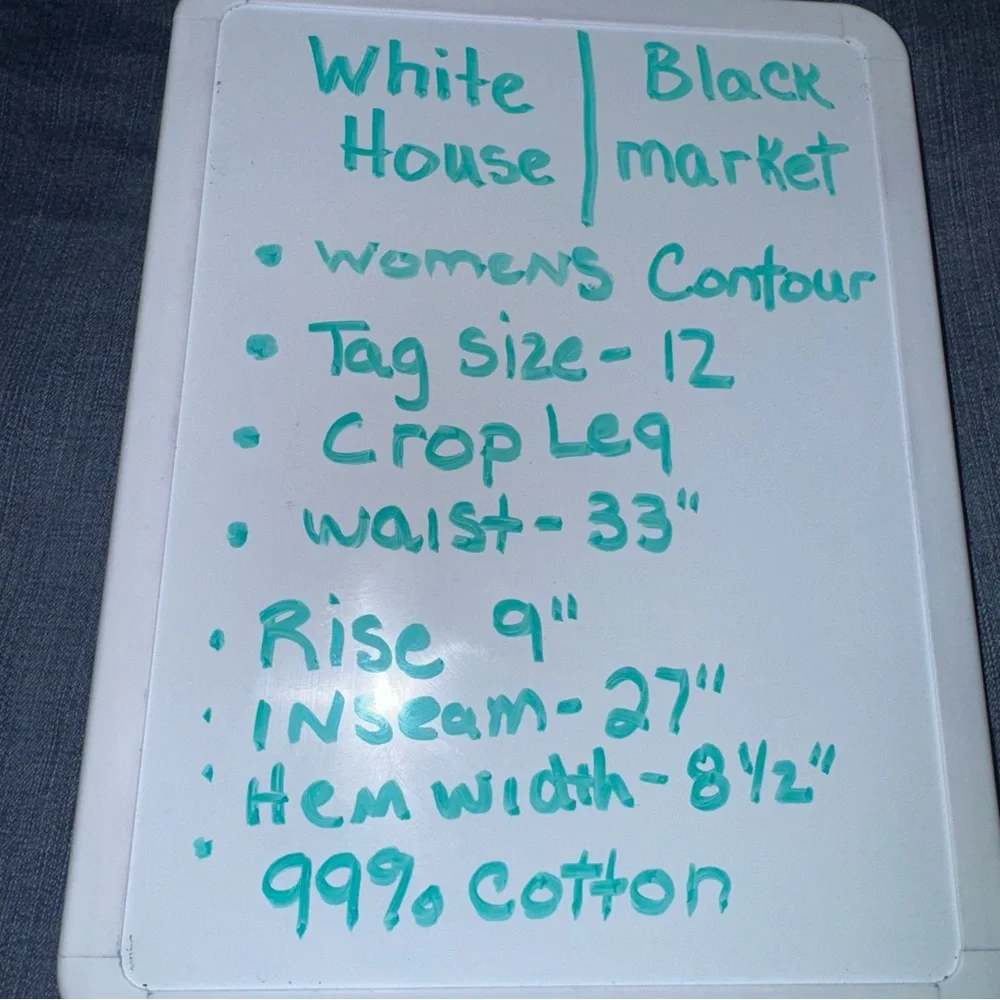 White | Black
House | market
• Womens Contour
• Tag size - 12
• Crop Leg
• waist - 33"
• Rise 9"
• INseam - 27"
• Hem width - 8 1/2"
• 99% cotton